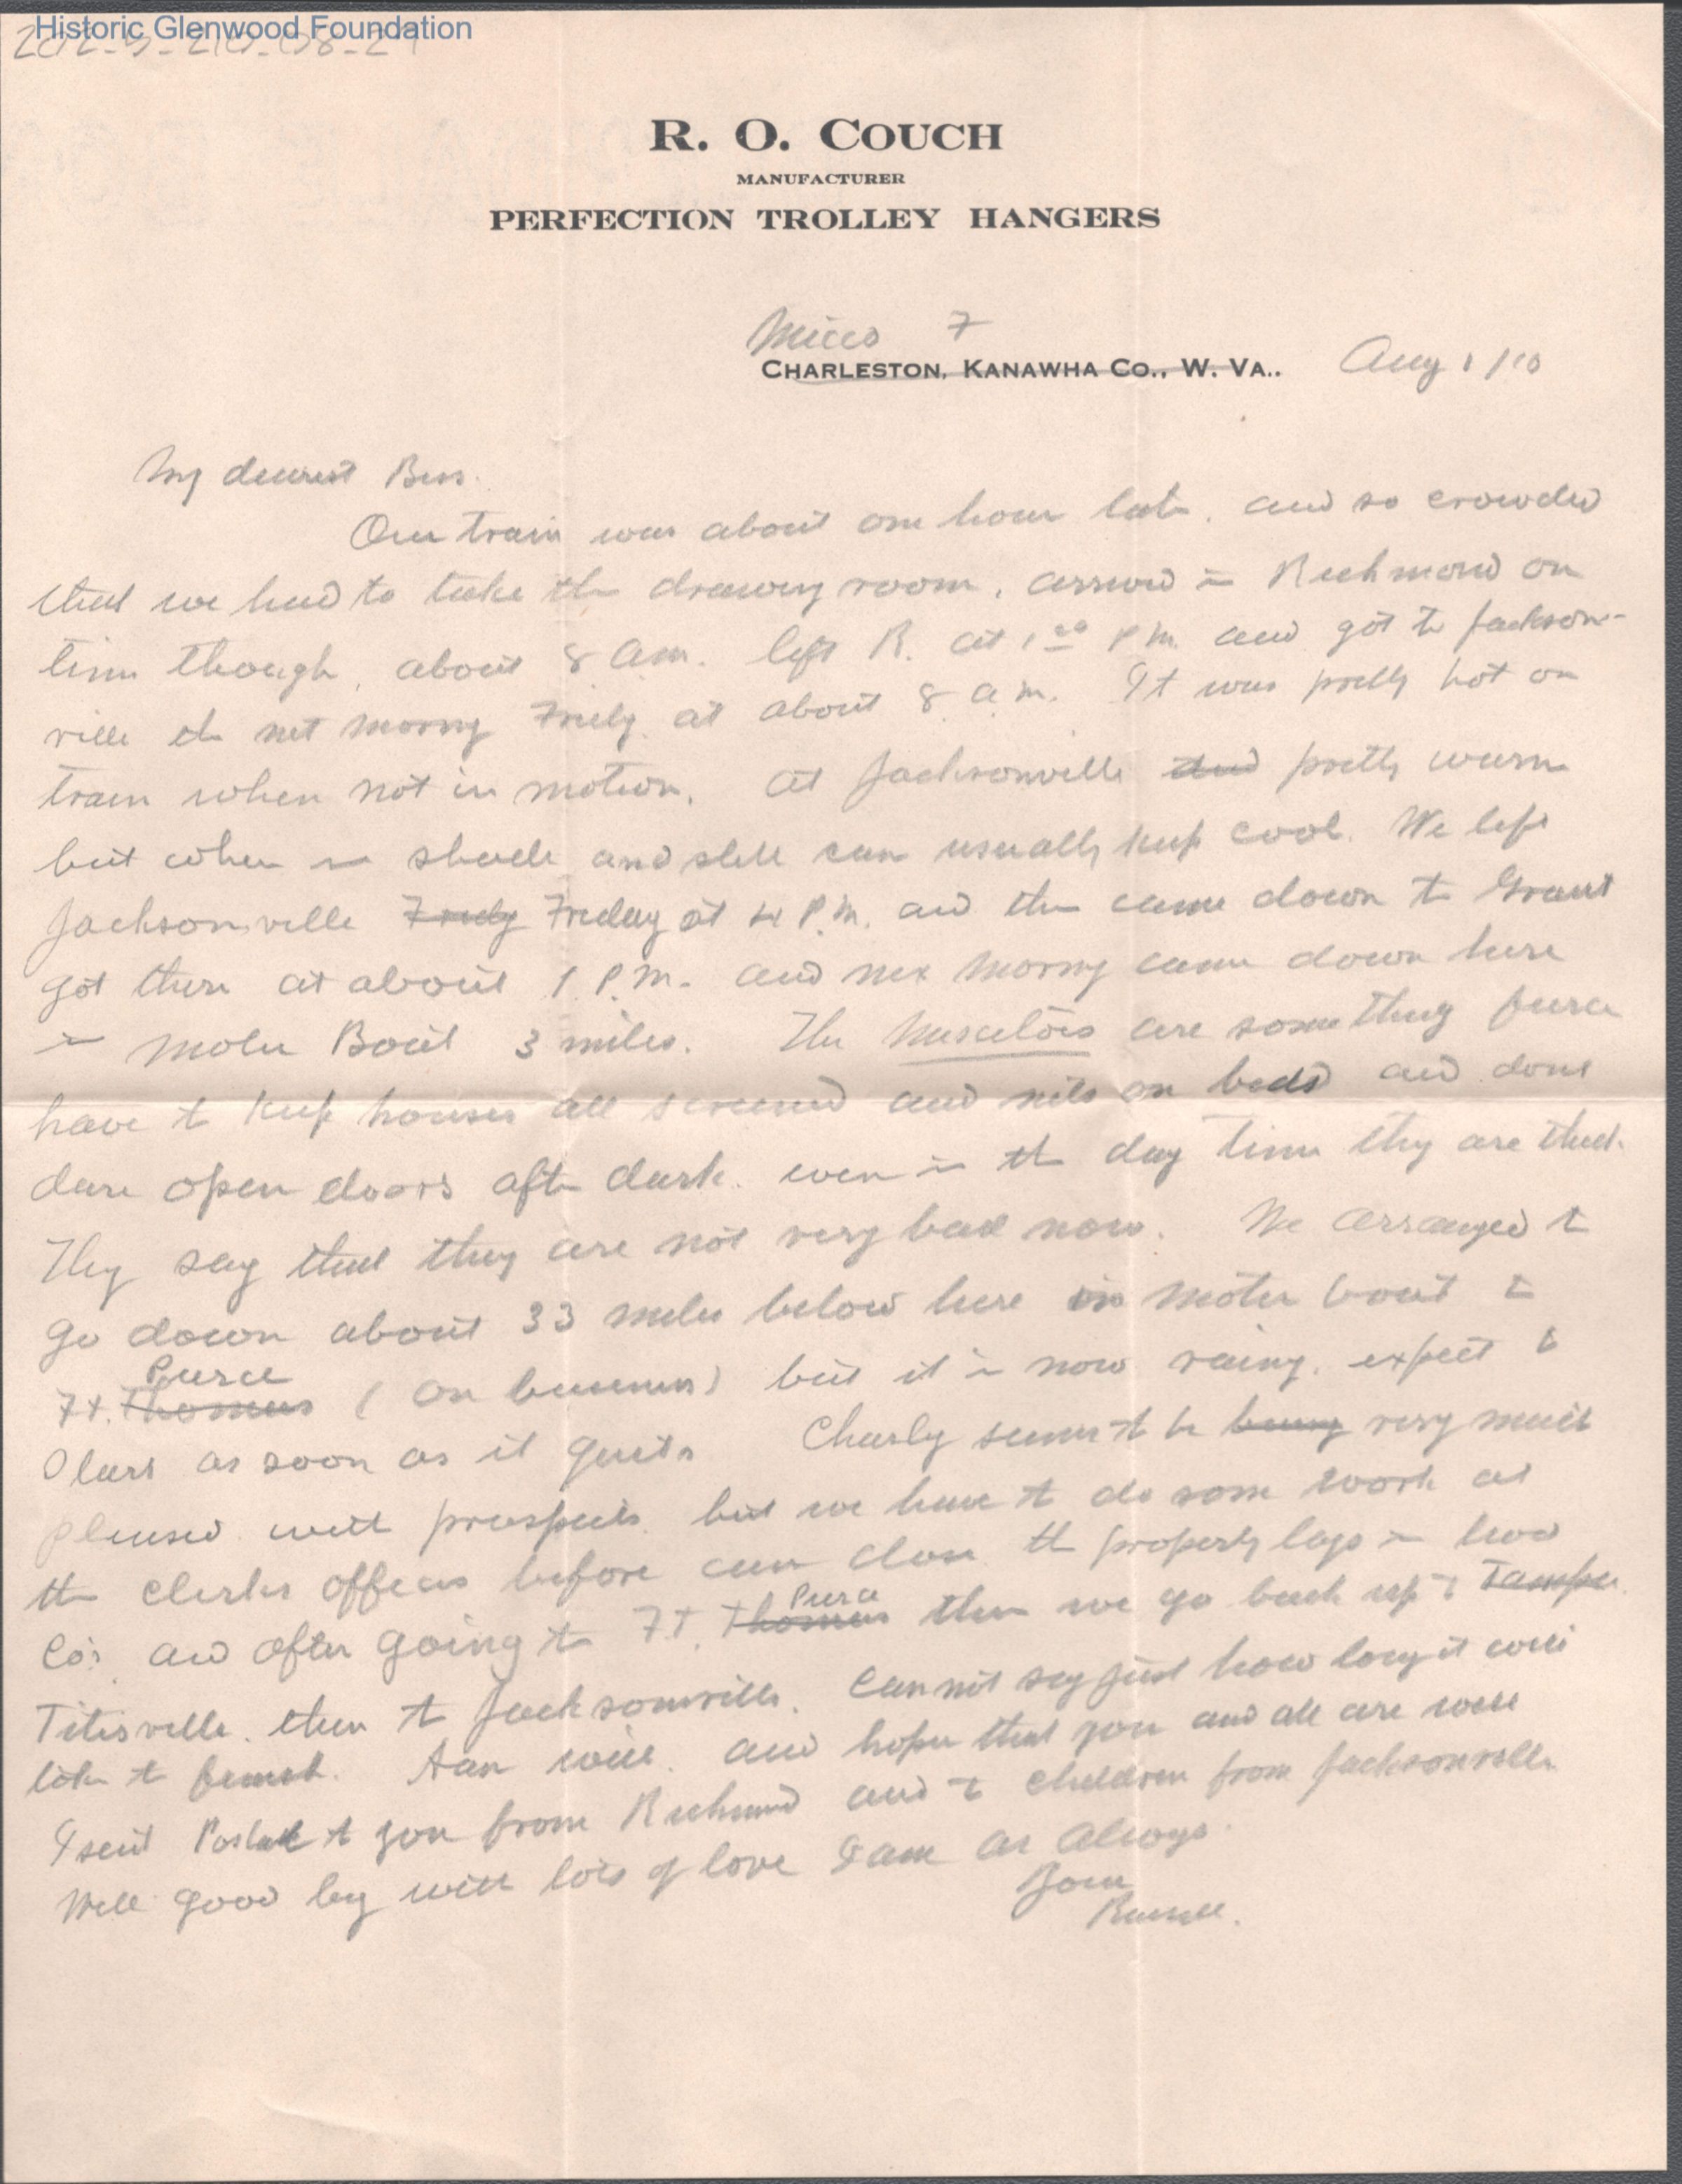 Historic Glenwood Foundation
R. O. COUCH
MANUFACTURER
PERFECTION TROLLEY HANGERS
Micco F
CHARLESTON, KANAWHA CO., W. VA.. Aug 1/10
My dearest Bess.
Our train was about one hour late, and so crowded
that we had to take the drawing room, arrived in Richmond on
time though, about 8 am. left R. at 1 00 P m. and got to Jackson-
ville the net morng at about 8 a.m. It was pretty hot on
train when not in motion. at Jacksonville and pretty warm
but when in shade and still can usually keep cool. We left
Jacksonville Friday at 4 P.M. and then came down to Grant
got there at about 1 P.M. and nex morng came down here
in Moter Boat 3 miles. The Muscetois are something fierce
have to keep houses all screened and nets on beds and dont
dare open doors after dark. even in the day time they are thick.
They say that they are not very bad now. We arranged to
go down about 33 miles below here in moter boat to
Pierce
Ft. Thomas (on business) but it is now raing. expect to
start as soon as it quits Charly seems to be being very much
pleased with prospects but we have to do some work at
the clerks offices before can close the property lays in two
Pierce
Co's and after going to Ft. Thomas then we go back up to Tampa
Titisville. then to Jacksonville. Cannot say just how long it will
take to finish. Aan well. and hope that you and all are well
I sent Postal to you from Richmond and to children from Jacksonville.
Well good by with lots of love I am as Always.
Your
Russell.